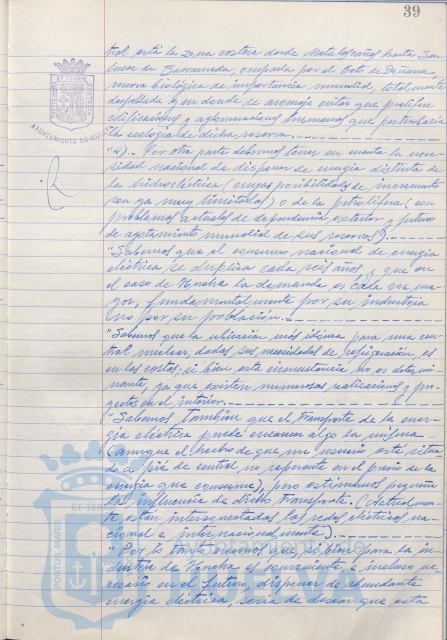 39
tral está la zona costera desde Matalascañas hasta San
lucar de Barrameda, ocupada por el Coto de Doñana,
reserva biológica de importancia mundial, totalmente
despoblada y en donde se aconseja evitar que proliferen
edificaciones y aglomeraciones humanas que perturbaría
la ecología de dicha reserva.
"4).- Por otra parte debemos tener en cuenta la nece-
sidad nacional de disponer de energía distinta de
la hidroeléctrica (cuyas posibilidades de incremento
son ya muy limitadas) o de la petrolífera (con
problemas actuales de dependencia exterior y futuro
de agotamiento mundial de sus reservas).
"Sabemos que el consumo nacional de energía
eléctrica se duplica cada seis años y que en
el caso de Huelva la demanda es cada vez ma-
yor, fundamentalmente por su industria
(no por su población.
"Sabemos que la ubicación más idónea para una cen-
tral nuclear, dadas sus necesidades de refrigeración, es
en las costas; si bien esta circunstancia no es determi-
nante, ya que existen numerosas realizaciones y pro-
yectos en el interior.
"Sabemos también que el transporte de la ener-
gía eléctrica puede encarecer algo la misma
(aunque el hecho de que un usuario esté situa-
do a pié de central no repercute en el precio de la
energía que consume), pero estimamos pequeña
la influencia de dicho transporte. (Actualmen-
te, están interconectadas las redes eléctricas na-
cional e internacionalmente).
"Por lo tanto creemos que, si bien para la in-
dustria de Huelva es conveniente, e incluso ne-
cesario en el futuro, disponer de abundante
energía eléctrica, sería de desear que esta
AYUNTAMIENTO DE HUELVA
PORTUS MARIS
ET TERRAE